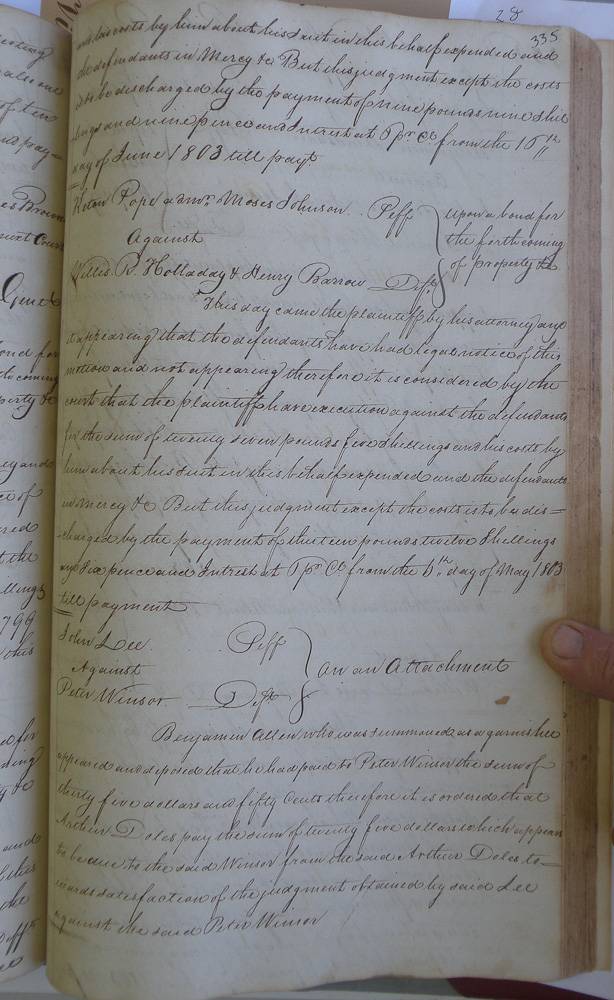 28
335
and his costs by him about his suit in this behalf expended and
the defendants in Mercy &c But this judgment except the costs
is to be discharged by the payment of nine pounds nine Shil
lings and nine pence and Intrest at 5 pr. Ct. from the 15th
day of June 1803 till payt.
Pope admr. Moses Johnson Plff
Against
Willis B. Holladay & Henry Barrow Defts
Upon a bond for
the forthcoming
of property &c
This day came the plaintiff by his attorney and
it appearing that the defendants have had legal notice of this
motion and not appearing therefore it is considered by the
court that the plaintiff have execution against the defendants
for the sum of twenty seven pounds five Shellings and his costs by
him about his suit in this behalf expended and the defendants
in Mercy &c But this judgment except the costs is to be dis=
charged by the payment of thirteen pounds twelve Shellings
and Six pence and Intrest at 5 pr Ct. from the day of May 1803
till payment
John Lee Plff
Against
Peter Winsor Deft
on an Attachment
Benjamin Allen who was summoned as a garnishee
appeared and deposed that he had paid to Peter Winsor the sum of
thirty five dollars and fifty Cents therefore it is ordered that
Arthur Doles pay the sum of twenty five dollars which appears
to be due to the said Winsor from the said Arthur Doles to=
wards satisfaction of the judgment obtained by said Lee
against the said Peter Winsor